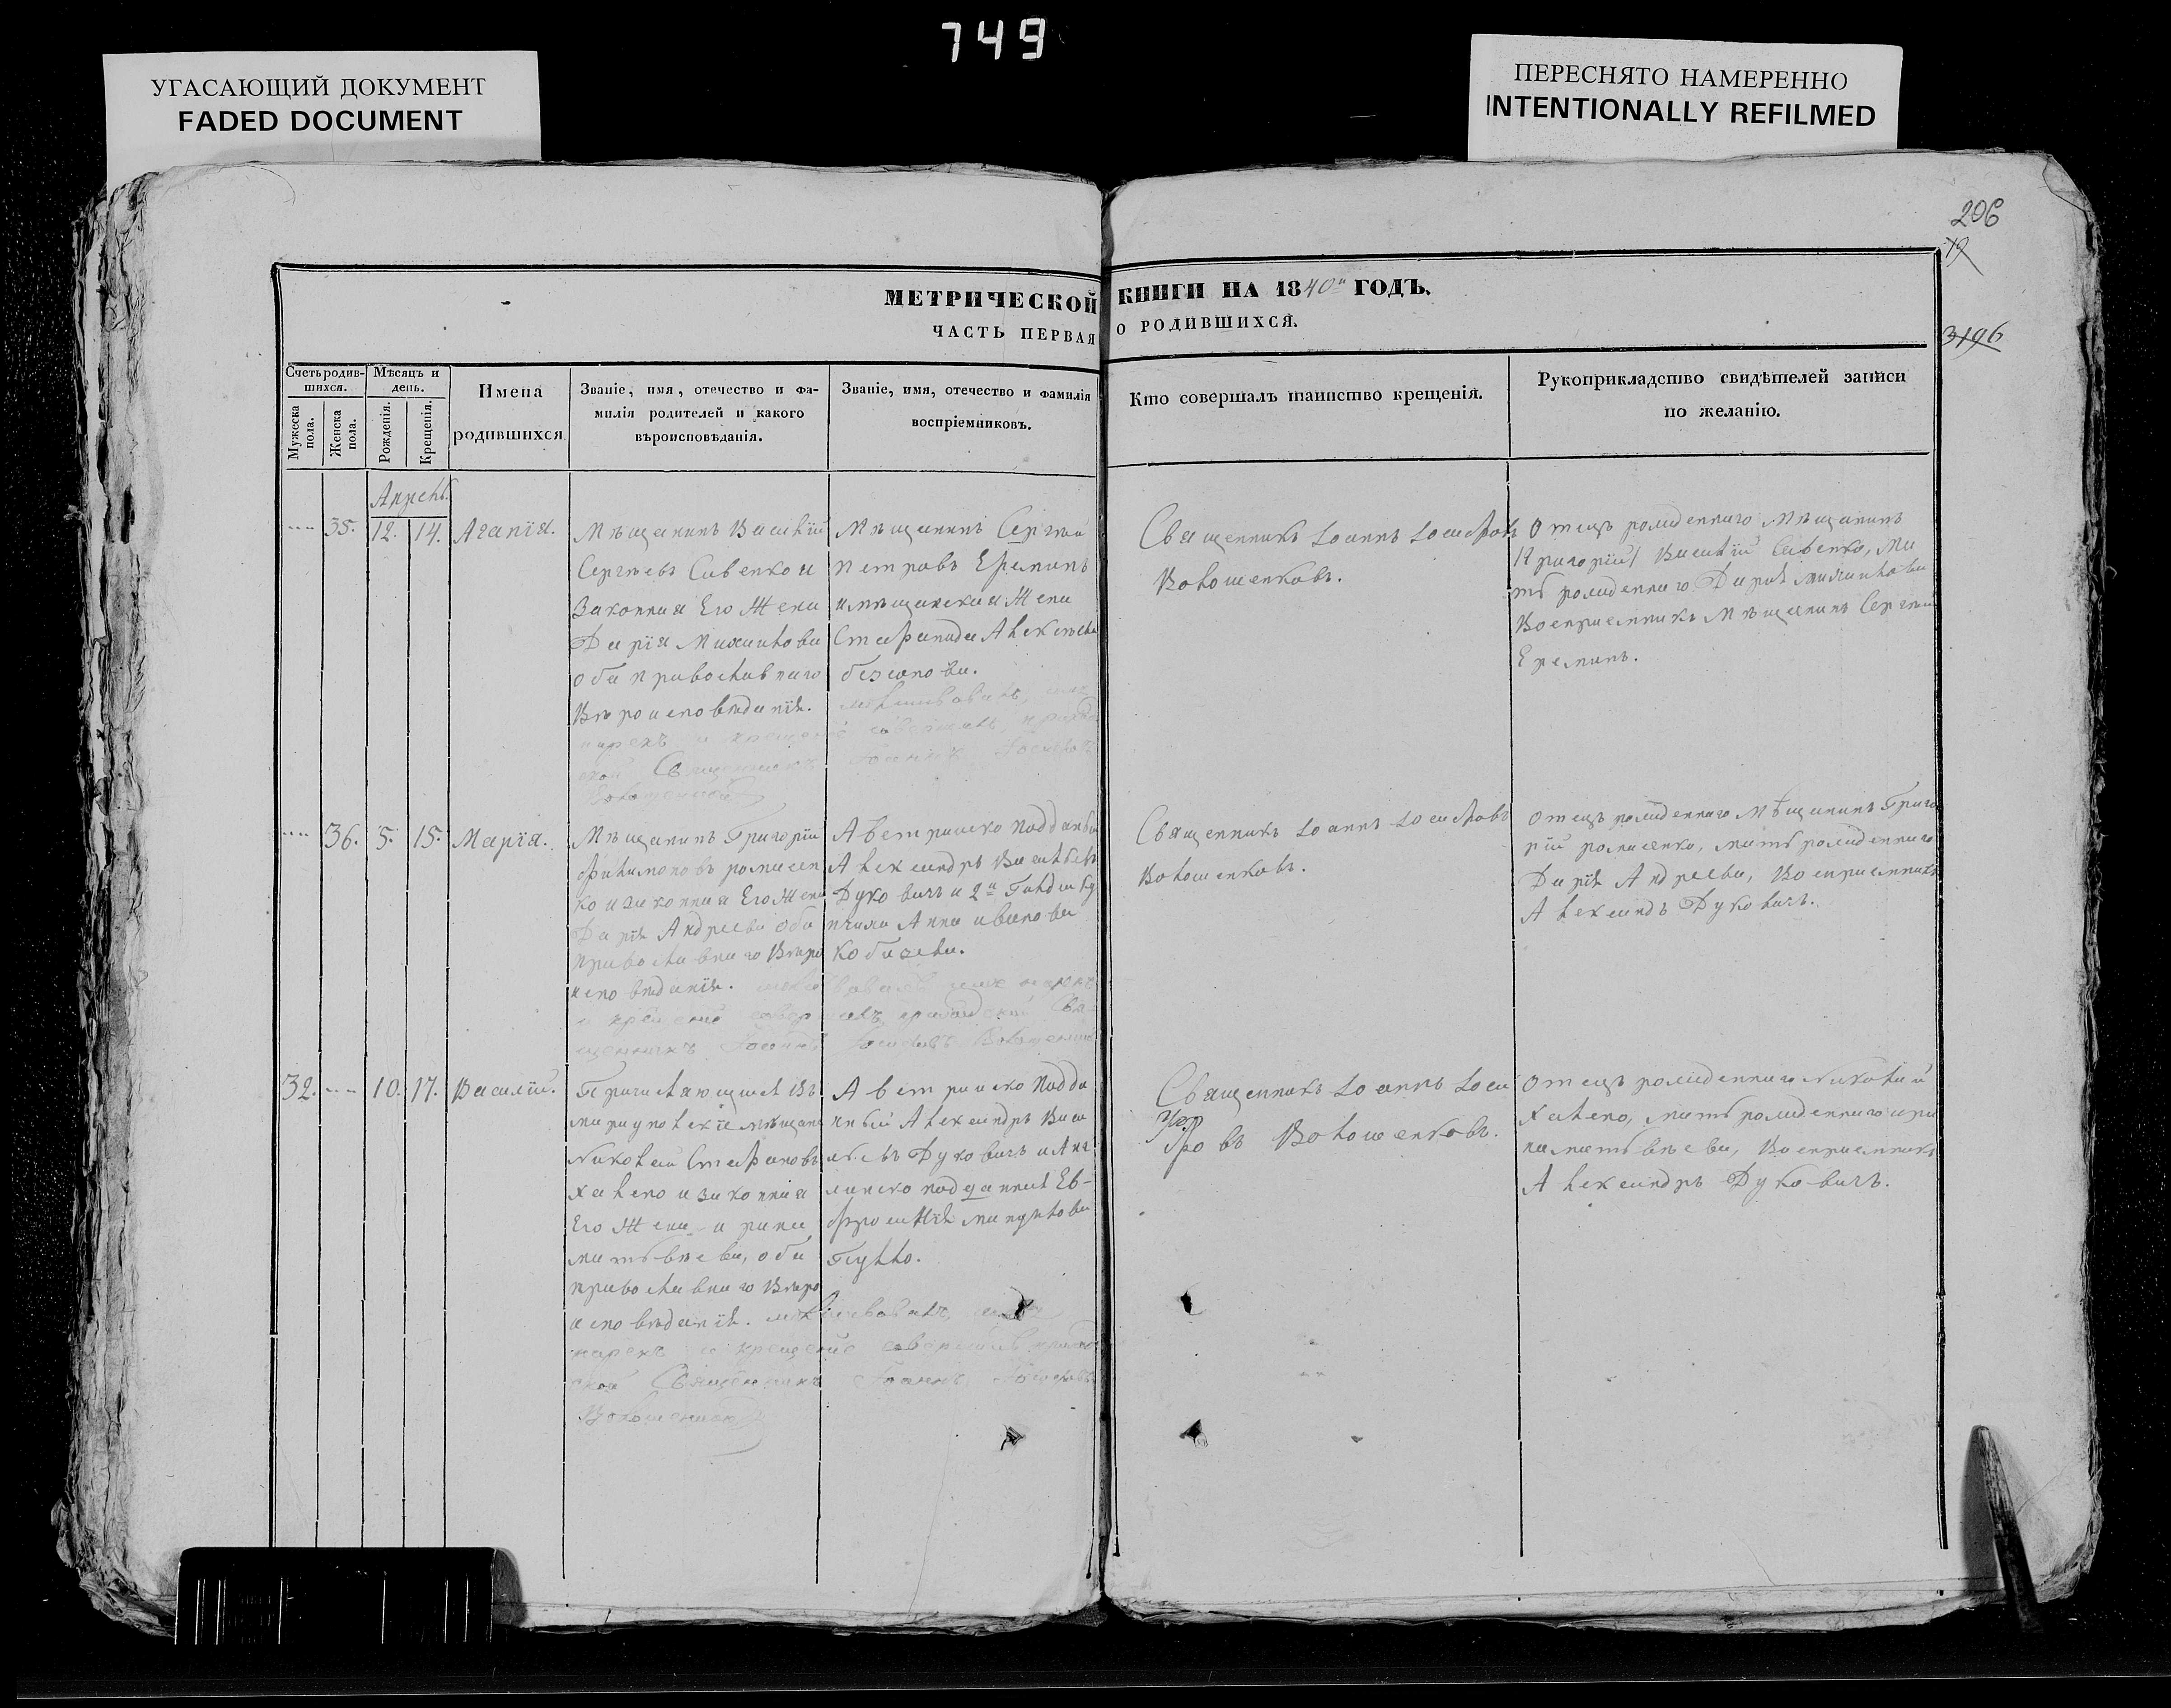 749
УГАСАЮЩИЙ ДОКУМЕНТ
FADED DOCUMENT
ПЕРЕСНЯТО НАМЕРЕННО
INTENTIONALLY REFILMED
206
19
3196
МЕТРИЧЕСКОЙ КНИГИ НА 1840й ГОДЪ.
ЧАСТЬ ПЕРВАЯ О РОДИВШИХСЯ.
Счетъ родив-
шихся.
Мужеска
пола.
Женска
пола.
Мѣсяцъ и
день.
Рожденія.
Крещенія.
Имена
родившихся
Званіе, имя, отечество и фа-
милія родителей и какого
вѣроисповѣданія.
Званіе, имя, отечество и фамилія
воспріемниковъ.
Кто совершалъ таинство крещенія.
Рукоприкладство свидѣтелей записи
по желанію.
Апрель
35. 12. 14. Агапія.
Мѣщанинъ Василій
Сергѣевъ Савенко и
Законная Его Жена
Дарія Михаилова
оба православнаго
Вѣроисповѣданія.
Мѣщанинъ Сергѣй
Петровъ Ереминъ
и мѣщанская Жена
Стефанида Алексѣева
нарекъ и крещеніе совершалъ
Священникъ Іоаннъ Іосифовъ
Волошенковъ
Священникъ Іоаннъ Іосифовъ
Волошенковъ.
Отецъ рожденнаго Мѣщанинъ
Василій Савенко, ма
ть рожденнаго Дарія Михаилова
Воспріемникъ Мѣщанинъ Сергѣй
Ереминъ.
36. 5. 15. Марія.
Мѣщанинъ Григорій
Филимоновъ ромасен
ко и законная Его Жена
Дарія Андреева оба
православнаго Вѣро
исповѣданія.
Австрийско поддан
Александръ Васильевъ
Дуковичъ и 2й Гильдіи ку
Анна иванова
и крещеніе совершалъ Свя
щенникъ Іоаннъ Іосифовъ
Священникъ Іоаннъ Іосифовъ
Волошенковъ.
Отецъ рожденнаго Мѣщанинъ Григо
рій ромасенко, мать рожденнаго
Дарія Андреева, Воспріемникъ
Александъ Дуковичъ.
32. 10. 17. Василій.
Мѣщан
Николай Стефановъ
и законная
Его Жена ирина
матвѣева, оба
православнаго Вѣро
исповѣданія.
Австрийско подда
нный Александръ Васи
льевъ Дуковичъ и Анг
лийско подданная Ев-
фросинія
нарекъ и крещеніе совершилъ
Священникъ Іоаннъ Іосифовъ
Волошенковъ
Священникъ Іоаннъ Іоси
фовъ Волошенковъ.
Отецъ рожденнаго Николай
мать рожденнаго ири
на матвѣева, Воспріемникъ
Александръ Дуковичъ.